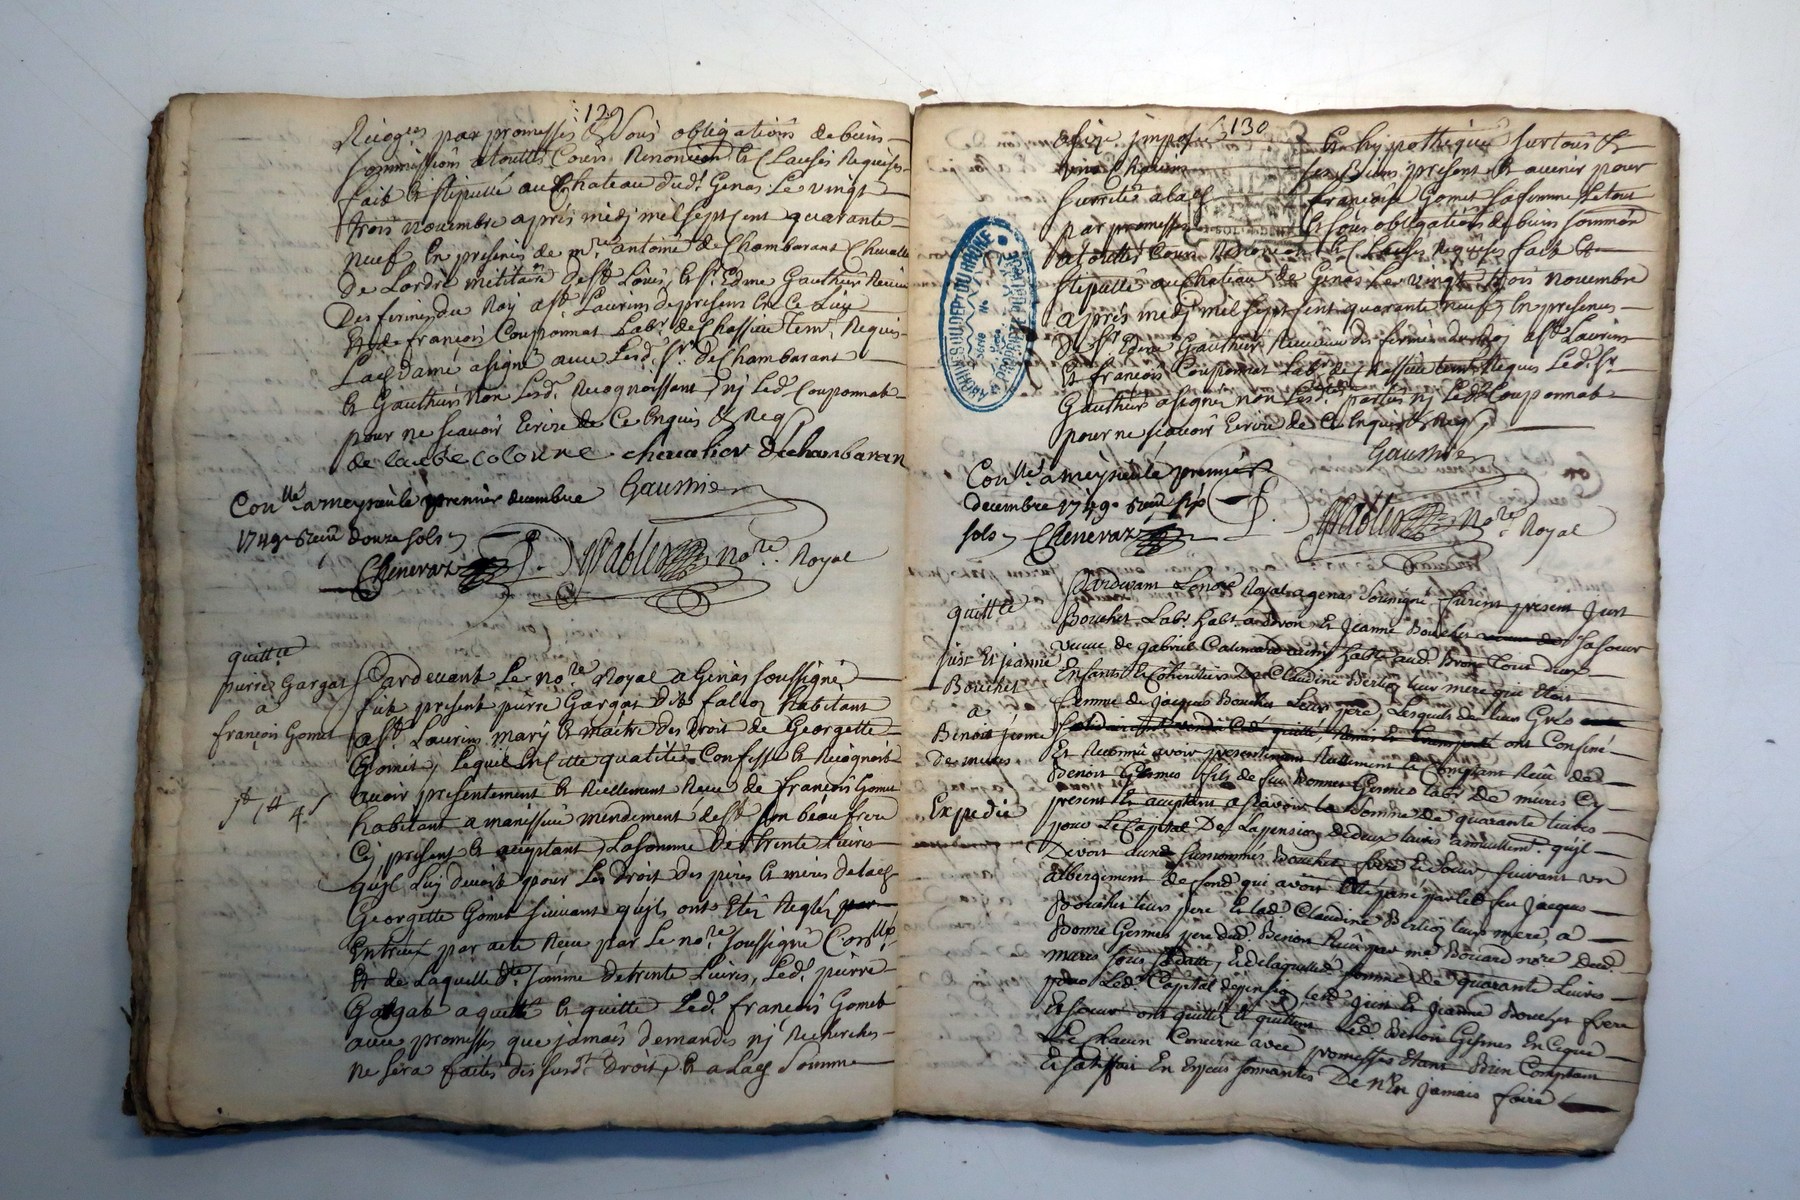 129
Recog.es par promesses & sous obligations de biens
soummissions a touttes Cours Renon.on et Clauses Requises
fait et stipullé au Chateau dud.t Genas Le vingt
trois novembre après midj mil sept cent quarante
neuf En presence de m.re antoine de Chambarant Chevallier
De Lordre militaire de st Loüis, et s.r Edme Gauthier Receveur
Des fermes du Roy a st Laurens de presens En Ce Luy
Et de françois Couponnat Lab.r de Chassieu tem.s Requis
Lad dame a signé avec Lesd. s.rs De Chambarant
et Gauthier non Lesd. Recognoissant nj Led. Couponnat
pour ne sçavoir Ecrire de Ce Enquis & Req
de colonne chevalier dechambaran
Gauthier
Con.llé a meyzieu le premier decembre
1749 Receu douze sols
Cheneraz Pablio no.re Royal
quitt.ce
pierre Gargat
a
françois Gomet
Pardevant Le no.re Royal a Genas soussigné
fut present pierre Gargat Dit falco habitant
a st. Laurens mary et maitre des Droit de Georgette
Gomet, Lequel En Cette qualité Confesse et Recognoit
avoir presentement et Reellement Receu de françois Gomet
habitant a manissieu mandement de st son béaufrere
Cy present et acceptant, La somme De trente Livres
qu'jl Luy devoit pour Les Droit des pères et mères de lad
Georgette Gomet suivant qu'jls ont Eté Reglés par
Entreux par acte Receu par Le no.re soussigné Con.llé
Et de Laquelle d.te somme De trente Livres, Led. pierre
Gargat a quitté et quitte Led. françois Gomet
avec promesses que jamais demandes nj Recherches
ne sera faites des susd.ts Droit, et a lad somme
130
Et hypothequé sur tous &
ses Biens present et avenir pour
surreté a lad françoise Gomet sa femme Le tout
par promesses Et sous obligations de biens soummōn
a touttes Cours Renon.on et Clauses Requises fait et
stipullé au Chateau de Genas Le vingt trois novembre
après midj mil sept cent quarante neuf En presence
De s.r Edme Gauthier Receveur des fermes du Roy a st Laurens
Et françois Couponnat Lab.r de Chassieu temoins Requis Led. s.r
Gauthier a signé non Lesd. parties nj Led. Couponnat
pour ne sçavoir Ecrire de Ce Enquis & Req
Gauthier
Con.llé a meyzieu le premier
decembre 1749 Receu six
sols Cheneraz Pablio no.re Royal
ARCHIVES DU DEP.T DU RHÔNE
PROPRIÉTÉ PUBLIQUE
quitt.ce
just Et jeanne
Bouchet
a
Benoit jesme
de mures
Expedié
Pardevant Le no.re Royal a genas soussigné furent present Just
Bouchet Lab.r hab.t a Bron et Jeanne Bouchet sa soeur
veuve de gabriel hab.te aud. Bron Tous deux
Enfants Et Cohéritiers De Claudine Berlio leur mere que Etoit
femme de jacques Bouchet Leur père, Lesquels de leur Gré
ont Confessé
Et Reconnu avoir presentement Reellement Et Comptant Receu de
Benoit Gesmes fils de feu Bonnet Gesmes lab.r De mures Cy
present Et acceptant a sçavoir la Somme de quarante livres
pour Le Capital De Lapension de deux livres annuellement qu'jl
Devoit auxd. surnommés Bouchet frère Et soeur suivant un
albergement de fond qui avoit Eté passé par led feu jacques
Bouchet leur pere Et lad Claudine Berlio leur mere, a
Bonnet Gesmes pere dud. Benoit Receu par me Bouard no.re Dud.
mures sous sa datte, Et de laquelle somme de quarante Livres
pour Led. Capital de pension, lesd. just Et Jeanne Bouchet frere
Et soeur ont quitté et quittent Led. Benoit Gesmes En Ce que
Le chacun Concerne avec promesses Etant Bien Comptant
Et satisfait En Especes sonnantes De n'En jamais faire